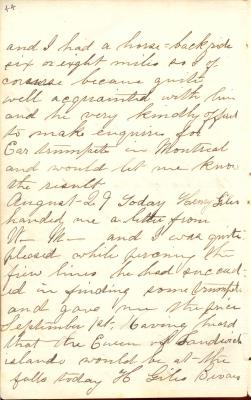 44
and I had a horse-back ride
six or eight miles so I of
course became quite
well acquainted with him
and he very kindly offered
to make enquires for
Ear trumpets in Montreal
and would let me know
the result
August 29 Today Henry Giles
handed me a letter from
W— M— and I was quite
pleased while perusing the
few lines he had succeed-
ed in finding some trumpets
and gave me the price
September 1st. Having heard
that the Queen of Sandwich
islands would be at the
falls today H Giles